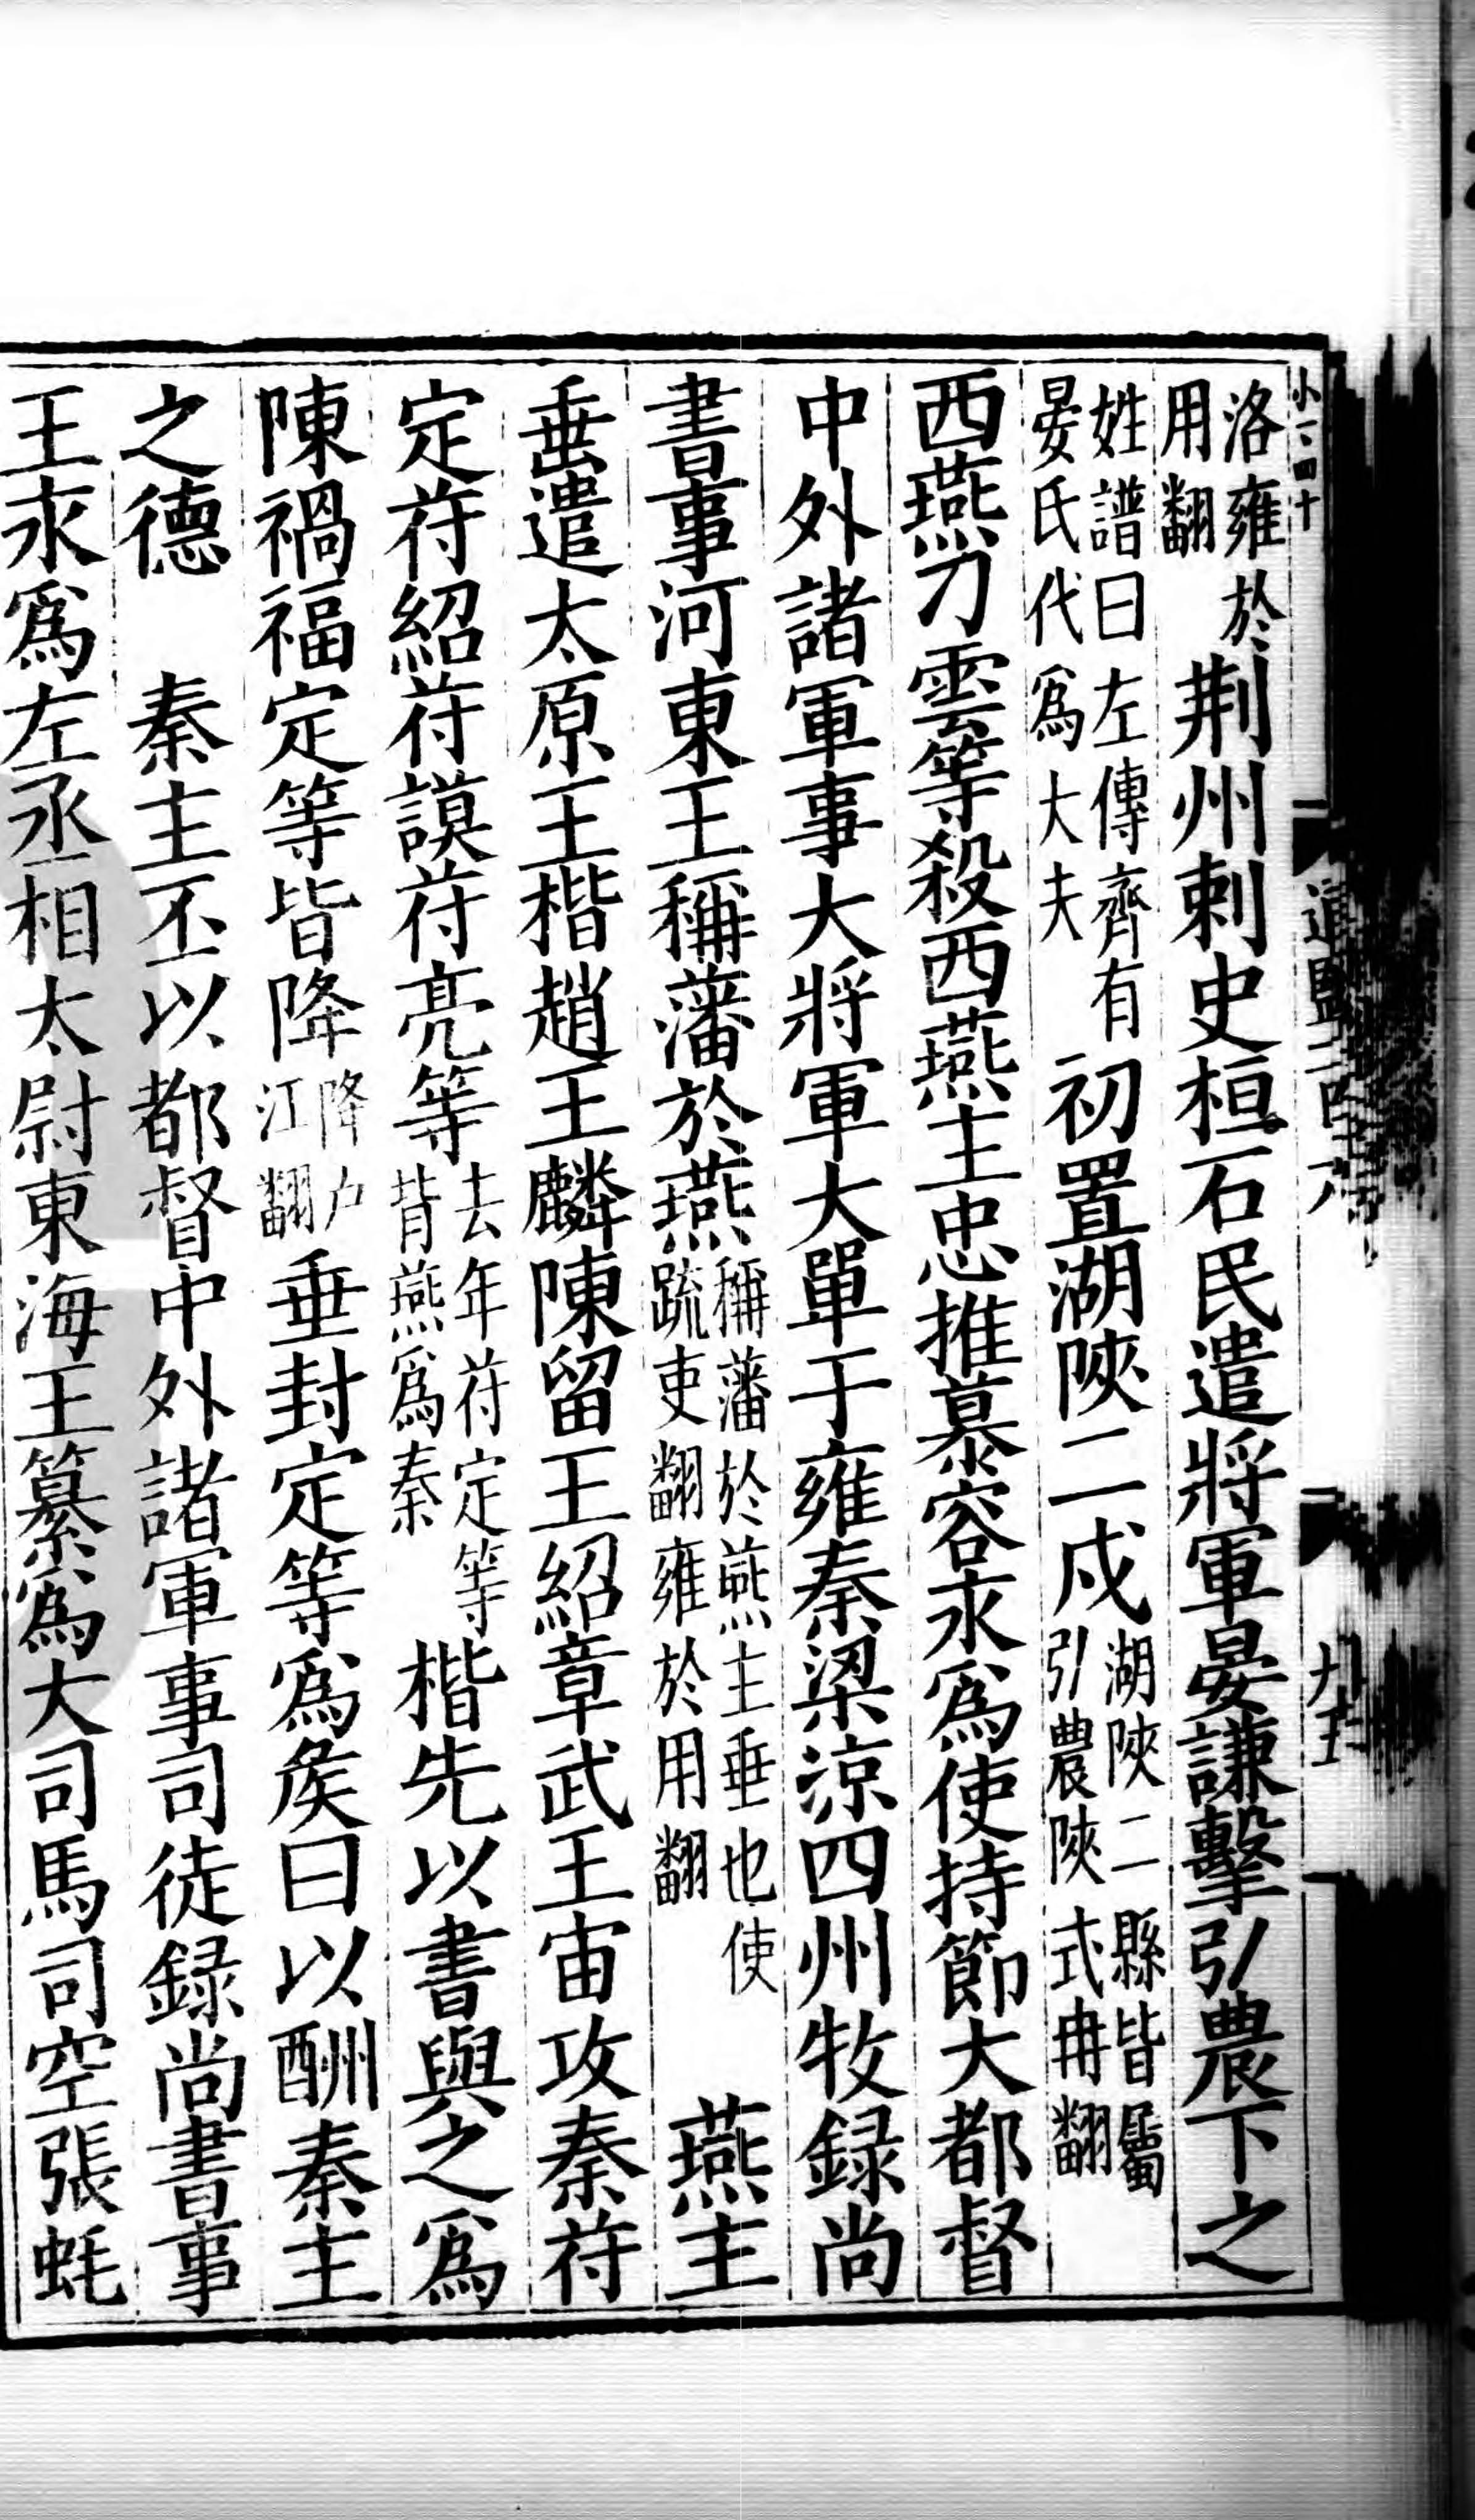 洛雍於用翻荆州刺史桓石民遣將軍晏謙擊弘農下之
姓譜曰左傳齊有晏氏代爲大夫初置湖陜二戍湖陜二縣皆屬弘農陜式冉翻
西燕刁雲等殺西燕主忠推慕容永爲使持節大都督
中外諸軍事大將軍大單于雍秦梁涼四州牧録尚
書事河東王稱藩於燕稱藩於燕主垂也使疏吏翻雍於用翻燕主
垂遣太原王楷趙王麟陳留王紹章武王宙攻秦苻
定苻紹苻謨苻亮等去年苻定等背燕爲秦楷先以書與之爲
陳禍福定等皆降降户江翻垂封定等爲矦曰以酬秦主
之德　秦主丕以都督中外諸軍事司徒録尚書事
王永爲左丞相太尉東海王纂爲大司馬司空張蚝